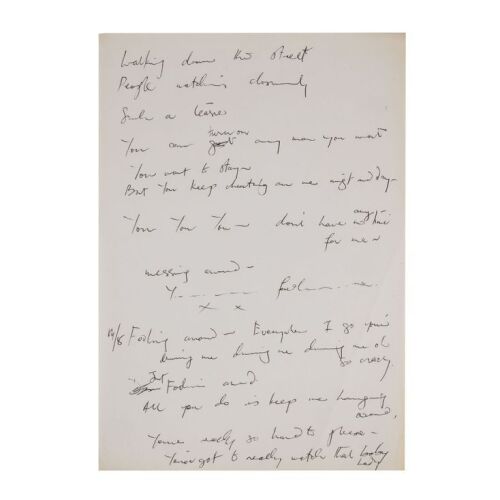 Walking down the street
People watching
Such a teaser
turn on
You can any man you want
You want to stay
But You keep cheating on me night and day -
You You You ~ don't have any time
for me ~
messing around -
Y
x x
Fooling around ~ I go you're
driving me driving me driving me oh
so crazy.
Just
Foolin around
All you do is keep me hanging
around,
You're really so hard to please -
You've got to really watch that
Lady